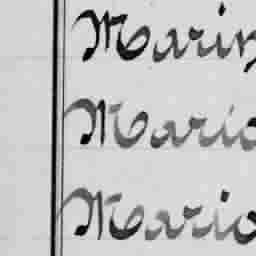 Marin
Mario
Mario